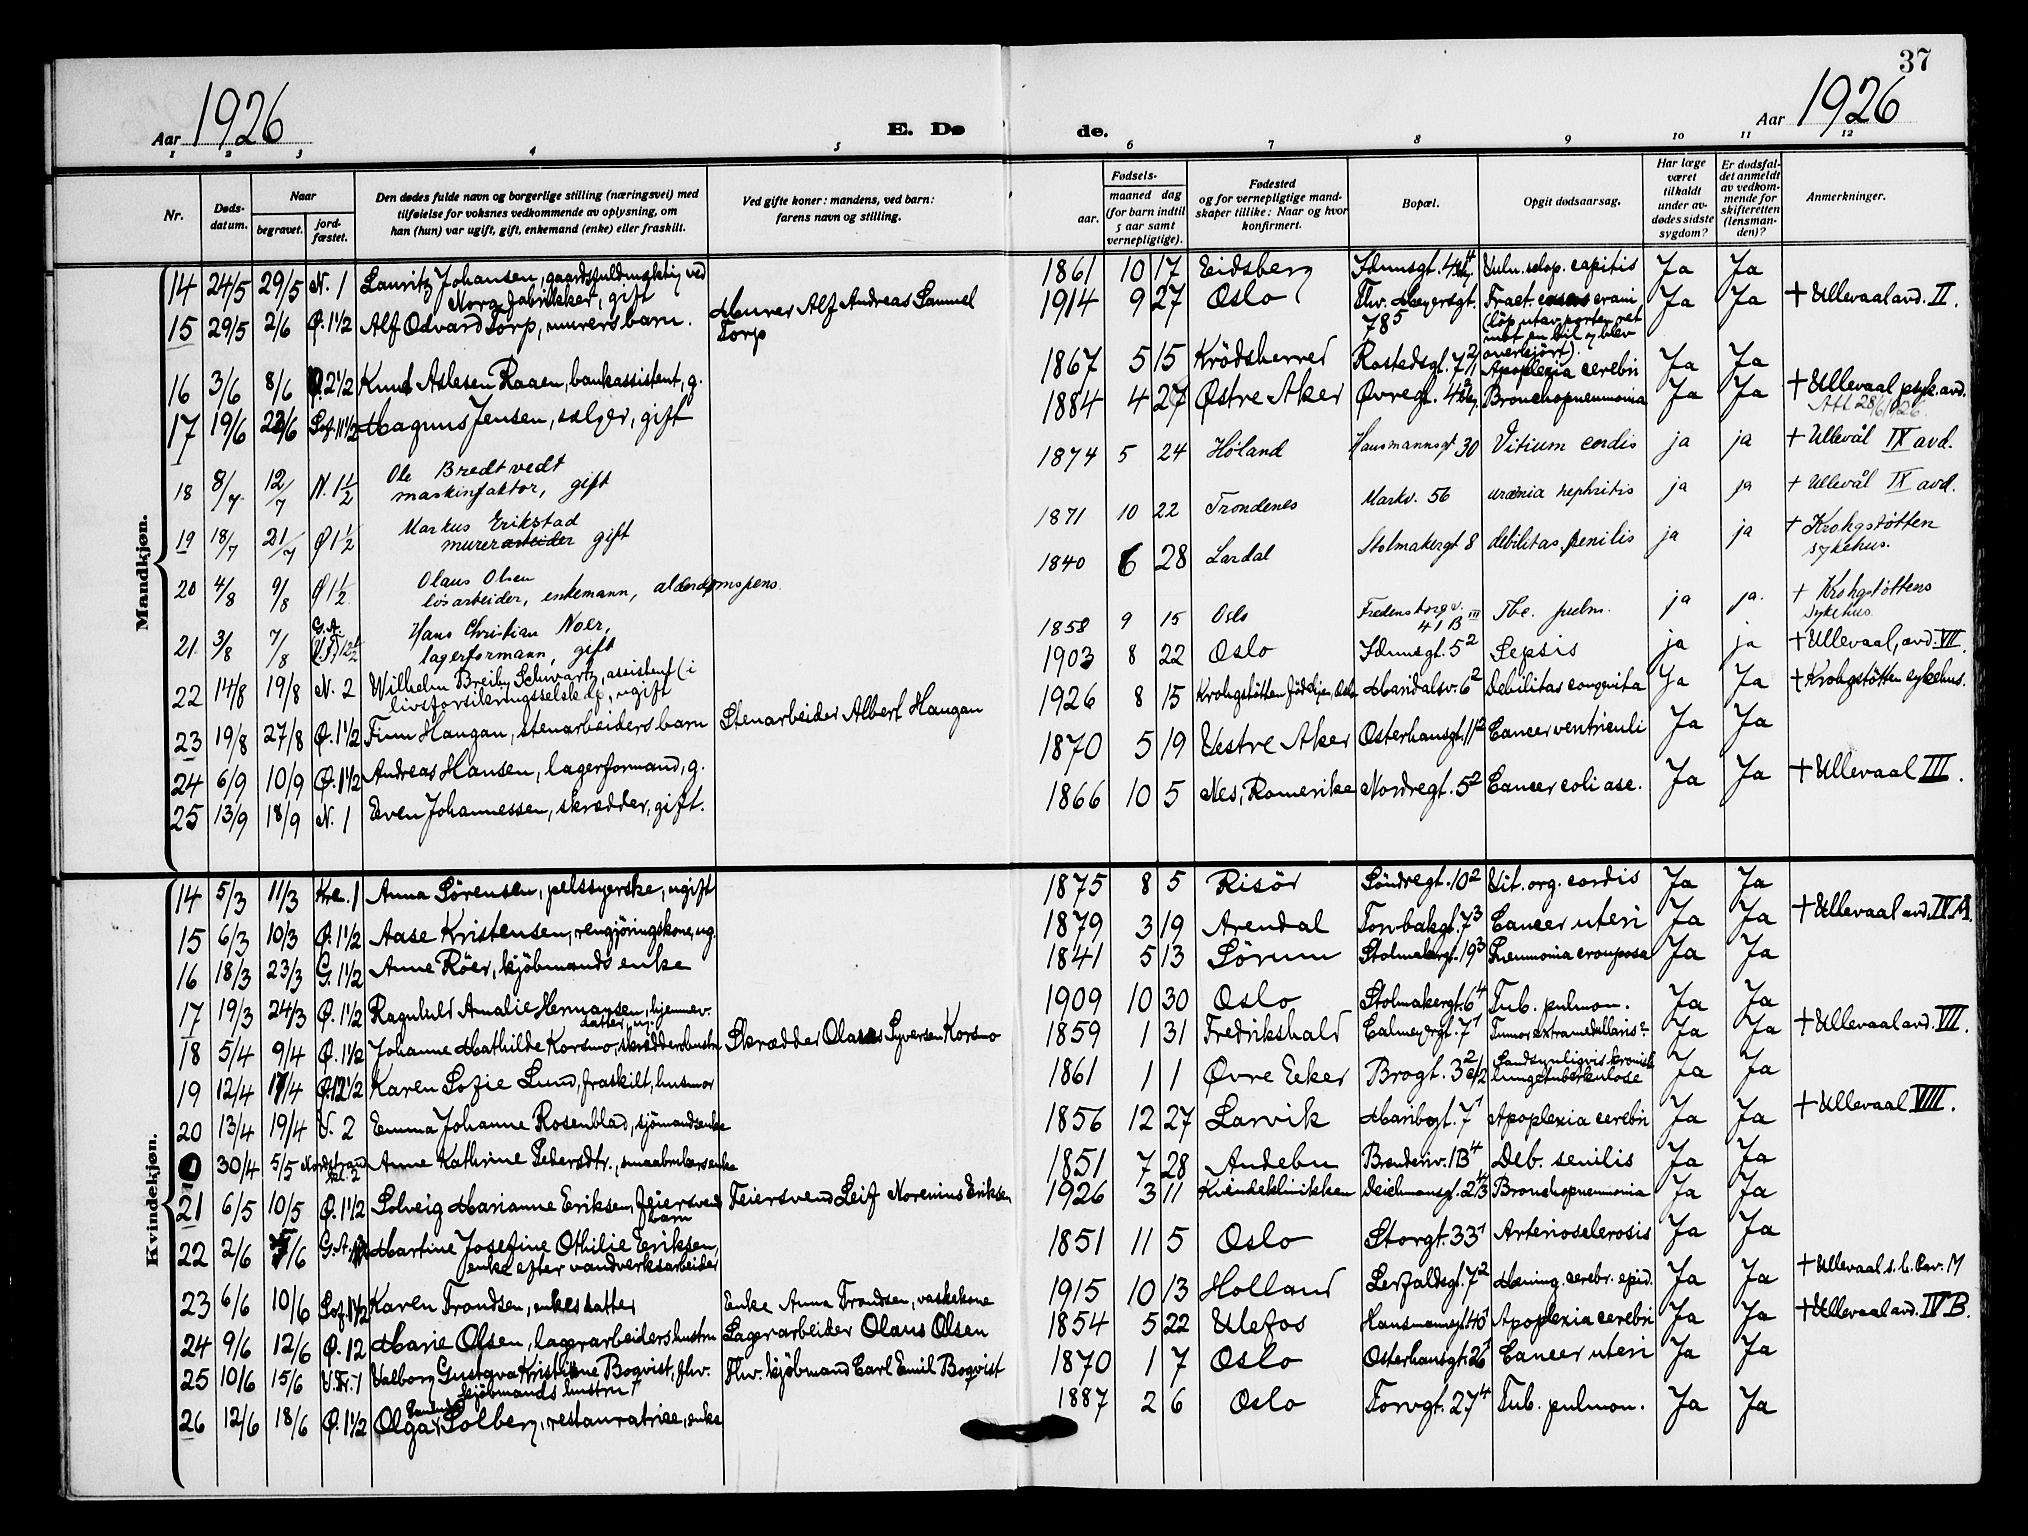 37
Aar 1926
E. Dø
de.
Aar 1926
1 2 3 4 5 6 7 8 9 10 11 12
Nr.
Døds-
datum.
Naar
begravet.
jord-
fæstet.
Den dødes fulde navn og borgerlige stilling (næringsvei) med
tilføielse for voksnes vedkommende av oplysning, om
han (hun) var ugift, gift, enkemand (enke) eller fraskilt.
Ved gifte koner: mandens, ved barn:
farens navn og stilling.
Fødsels-
aar.
maaned dag
(for barn indtil
5 aar samt
vernepligtige).
Fødested
og for vernepligtige mand-
skaper tillike: Naar og hvor
konfirmert.
Bopæl.
Opgit dødsaarsag.
Har læge
været
tilkaldt
under av-
dødes sidste
sygdom?
Er dødsfal-
det anmeldt
av vedkom-
mende for
skifteretten
(lensman-
den)?
Anmerkninger.
Mandkjøn.
14 24/5 29/5 N. 1 Lauritz Johansen, gaardsfuldmæktig ved
Norg. fabrikker, gift
1861 10 17 Eidsberg capitis Ja Ja
15 29/5 2/6 Ø. 1 1/2 Alf Odvard Torp, murers barn. Murer Alf Andreas Samuel
Torp
1914 9 27 Oslo Thv. Meyersgt. 78 5 Fract. cranii
(löp utav porten ret
mot en bil og blev
overkjört). Ja Ja + Ullevaal avd. II.
16 3/6 8/6 Ø. 2 1/2 Knut Aslesen Raaen, bankassistent, g.
1867 5 15 Krödsherred Rostedsgt. Apoplexia cerebri Ja Ja
17 19/6 23/6 Sof. 11 1/2 Magnus Jensen, sælger, gift
1884 4 27 Østre Aker Øvregt. Bronchopneumonia Ja Ja + Ullevaal psyk. avd.
Att. 28/6 1926.
18 8/7 12/7 N. 1 1/2 Ole Bredtvedt
maskinfaktor, gift
1874 5 24 Höland Hausmannsgt 30 Vitium cordis ja ja + Ullevål IX avd.
19 18/7 21/7 Ø 1 1/2 Markus Erikstad
murerarbeider gift
1871 10 22 Trondenes Markv. 56 uræmia nephritis ja ja + Ullevål IX avd.
20 4/8 9/8 Ø 1 1/2 Olaus Olsen
løsarbeider, enkemann, alderdomspens.
1840 6 28 Lardal Stolmakergt 8 debilitas senilis ja ja + Krohgstøtten
sykehus.
21 3/8 7/8 G.A. Hans Christian Noer,
lagerformann, gift
1858 9 15 Oslo Fredensborgv. 41 B III Tbc. pulm. ja ja. + Krohgstøttens
sykehus.
22 14/8 19/8 N. 2 Wilhelm Breiby Schwartz, assistent (i
livsforsikringsselskap), ugift
1903 8 22 Oslo Idunsgt. 5 2 Sepsis ja ja + Ullevaal, avd. VII.
23 19/8 27/8 Ø. 1 1/2 Finn Haugan, stenarbeiders barn Stenarbeider Albert Haugan
1926 8 15 Krohgstøtten födehjem, Oslo Maridalsv. 6 2 Debilitas congenita Ja Ja + Krohgstøtten sykehus.
24 6/9 10/9 Ø. 1 1/2 Andreas Hansen, lagerformand, g.
1870 5 19 Vestre Aker Osterhausgt. 11 2 Cancer ventriculi Ja Ja
25 13/9 18/9 N. 1 Even Johannessen, skrædder, gift.
1866 10 5 Nes, Romerike Nordregt. 5 2 Cancer coli asc. Ja Ja + Ullevaal III.
Kvindekjøn.
14 5/3 11/3 Kre. 1 Anna Sörensen, pelssyerske, ugift
1875 8 5 Risör Söndregt. 10 2 Vit. org. cordis Ja Ja
15 6/3 10/3 Ø. 1 1/2 Aase Kristensen, rengjöringskone, ug.
1879 3 19 Arendal Torvbakgt. 7 3 Cancer uteri Ja Ja + Ullevaal avd. IV A.
16 18/3 23/3 G. 1 1/2 Anne Röer, kjöbmands enke
1841 5 13 Sörum Stolmakergt. 19 3 Pneumonia crouposa Ja Ja
17 19/3 24/3 Ø. 1 1/2 Ragnhild Amalie Hermansen, hjemmev.
datter, ug.
1909 10 30 Oslo Stolmakergt. 6 4 Tub. pulmon. Ja Ja
18 5/4 9/4 Ø. 1 1/2 Johanne Mathilde Korsmo, skrædderhustru Skrædder Olaus Syversen Korsmo
1859 1 31 Fredrikshald Calmeyergt. 7 1 Tumor extramedullaris Ja Ja + Ullevaal avd. VII.
19 12/4 17/4 Ø. 12 1/2 Karen Sofie Lund, fraskilt, husmor
1861 1 1 Øvre Eeker Brogt. 3 2 Sandsynligvis kronisk
lungetuberkulose Ja Ja
20 13/4 19/4 V. 2 Emma Johanne Rosenblad, sjömandsenke
1856 12 27 Larvik Maribogt. 7 1 Apoplexia cerebri Ja Ja + Ullevaal VIII.
30/4 5/5 Nordstrand kl. 2 Anne Kathrine Pedersdtr., smaabrukersenke
1851 7 28 Andebu Brenneriv. 1B 4 Deb. senilis Ja Ja
21 6/5 10/5 Ø. 1 1/2 Solveig Marianne Eriksen, feiersvend
barn Feiersvend Leif Norenius Eriksen
1926 3 11 Kvindeklinikken Deichmansgt. Bronchopneumonia Ja Ja
22 2/6 7/6 G.A. Martine Josefine Othilie Eriksen,
enke efter vandverksarbeider
1851 11 5 Oslo Storgt. 33 1 Arteriosclerosis Ja Ja
23 6/6 10/6 Sof. 11 1/2 Karen Trondsen, enkes datter Enke Anna Trondsen, vaskekone
1915 10 13 Holland Lerfaldsgt. 7 2 Mening. cerebr. epid. Ja Ja + Ullevaal s.h. Pav. M
24 9/6 12/6 Ø. 12 Marie Olsen, lagerarbeiders hustru Lagerarbeider Olaus Olsen
1854 5 22 Ulefos Hausmannsgt. 40 1 Apoplexia cerebri Ja Ja + Ullevaal avd. IV B.
25 10/6 15/6 V. Fr. 1 Valborg Gustava Kristine Boqvist, fhv.
kjöbmands hustru Fhv. kjöbmand Carl Emil Boqvist
1870 1 7 Oslo Osterhausgt. 26 1 Cancer uteri Ja Ja
26 12/6 18/6 Ø. 1 1/2 Olga Solberg, restauratrice, enke
1887 2 6 Oslo Torvgt. 27 4 Tub. pulmon. Ja Ja